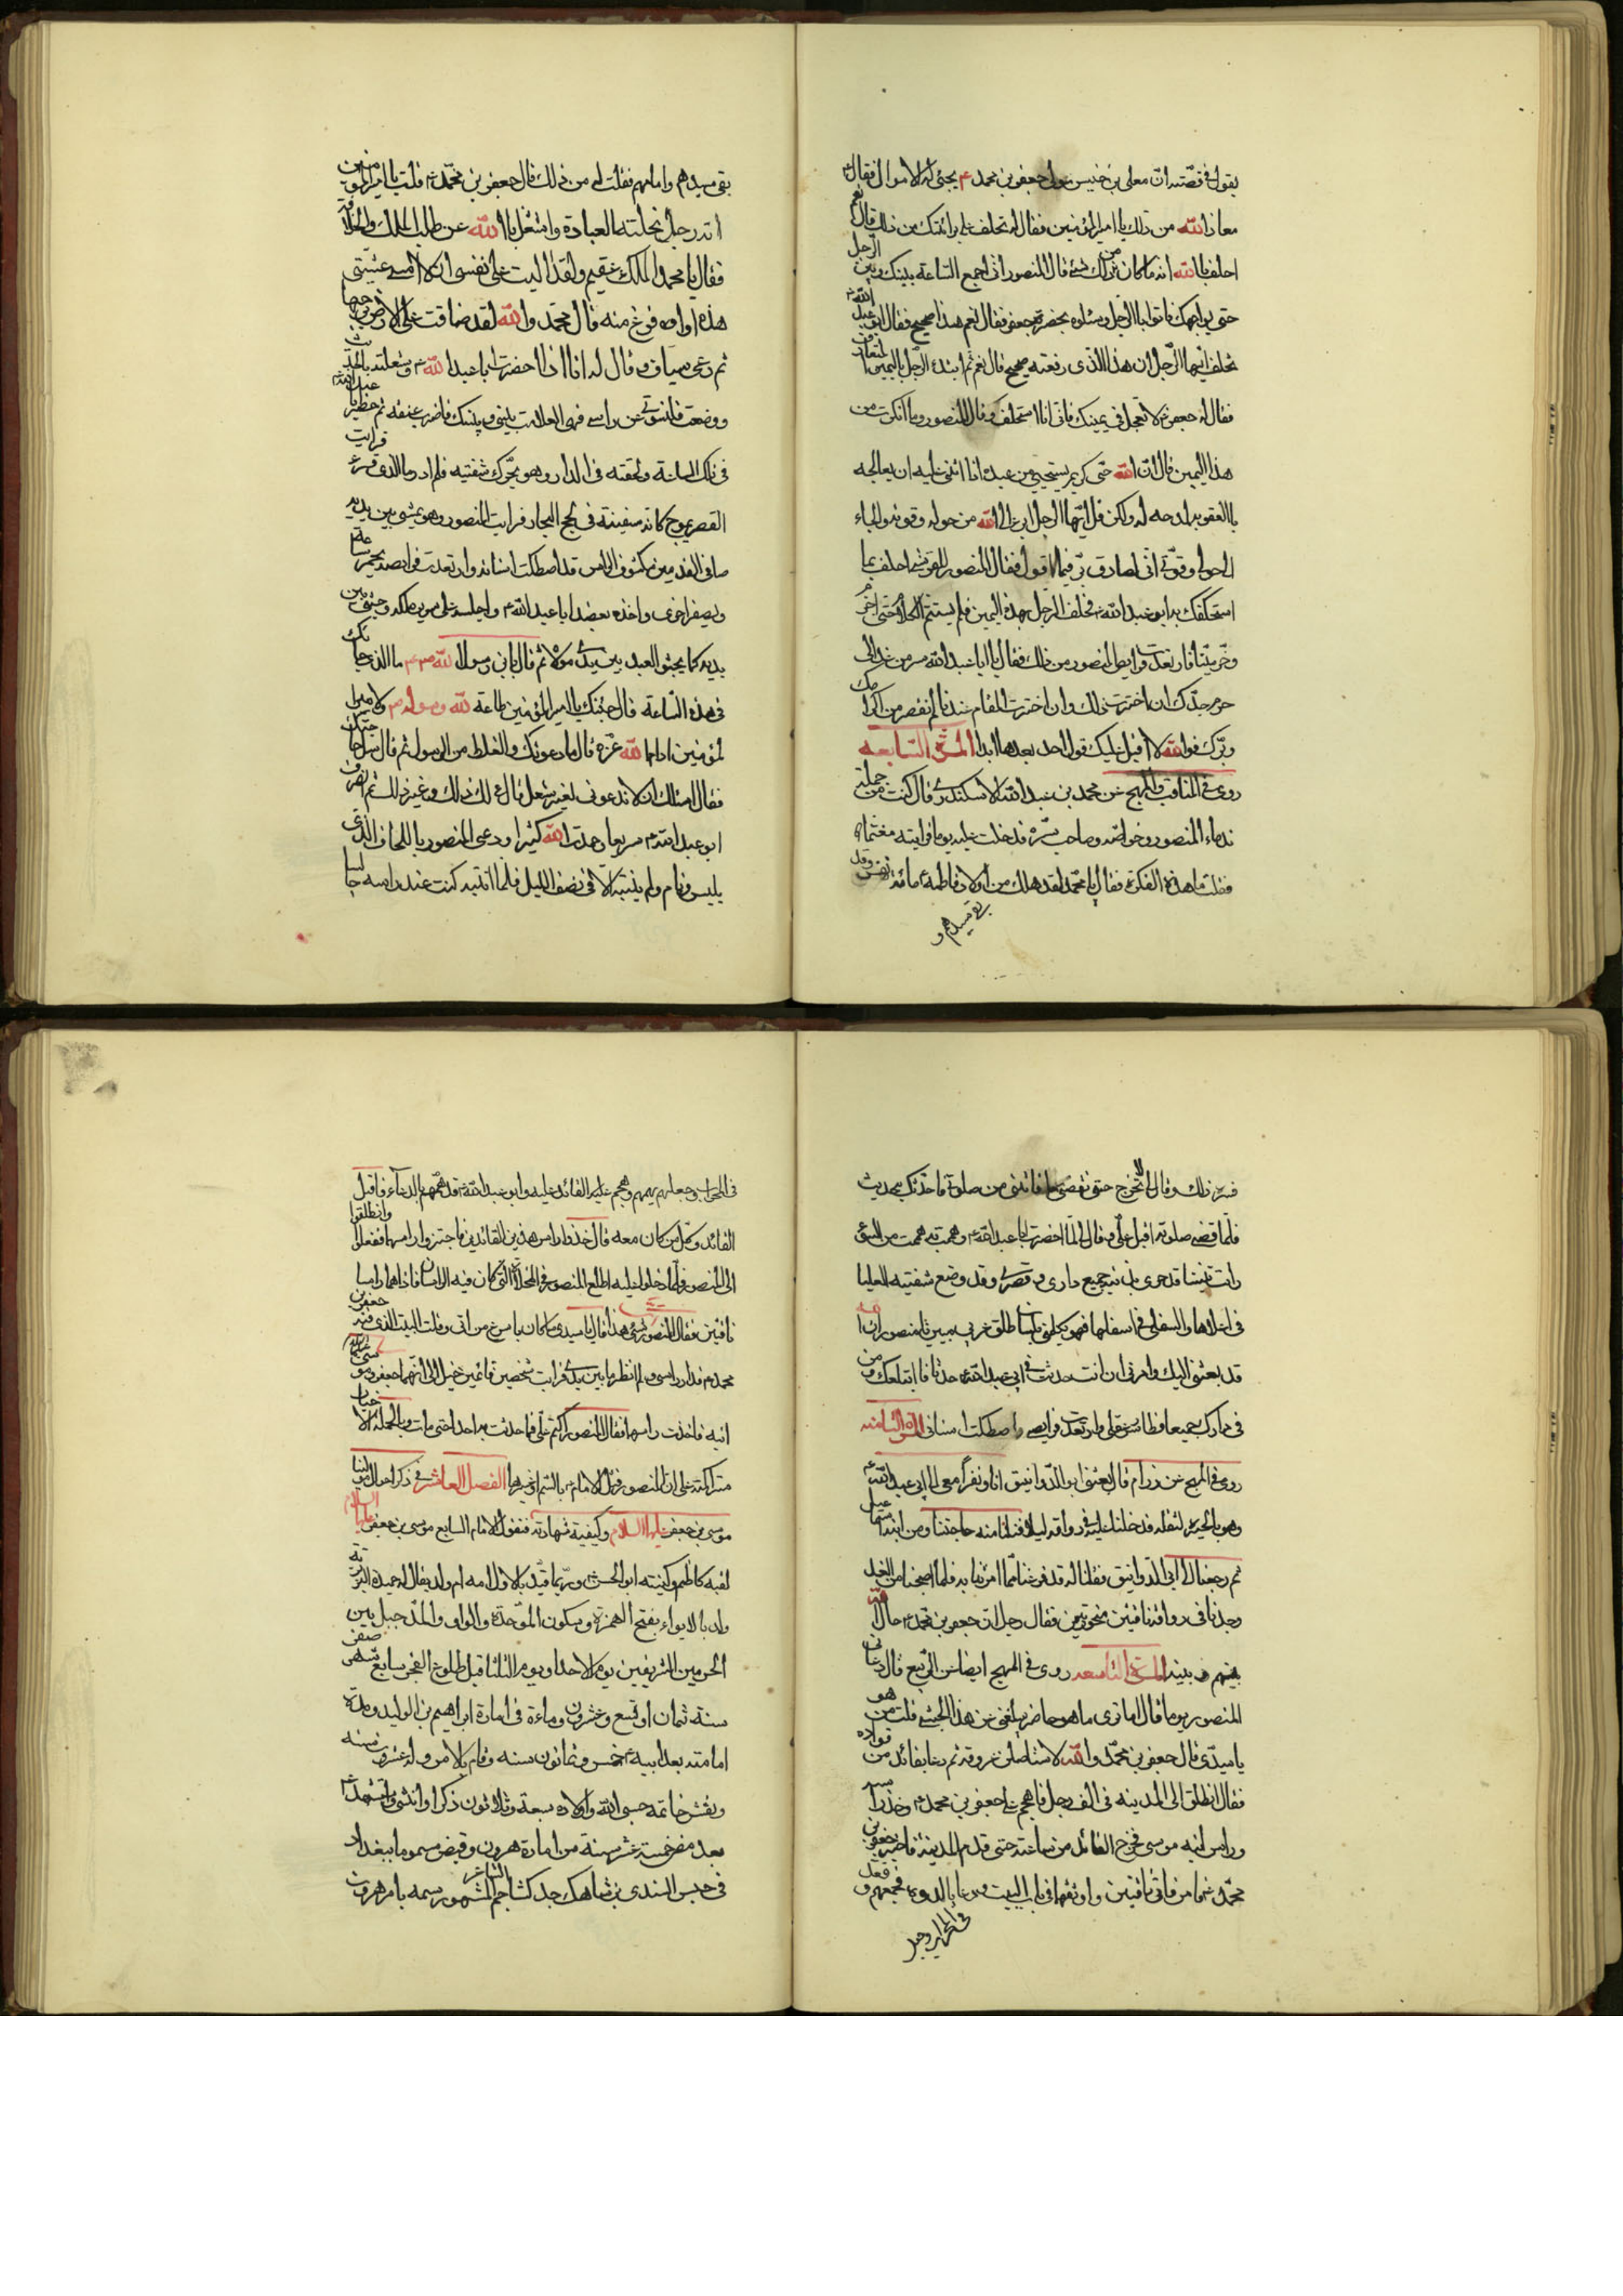 يقول في قصّته ان معلى بن خنيس مولى جعفر بن محمد ع يجبى له الاموال فقال
معاذ الله من ذلك يا امير المؤمنين فقال له تحلف على برائتك من ذلك قال نعم
احلف بالله انه ما كان من ذلك شئ قال المنصور اني اجمع الساعة بينك وبين الرجل
حتى يواجهك فاتوا بالرجل وسئلوه بحضرة جعفر فقال نعم هذا صحيح فقال ابو عبد الله ع
تحلف ايّها الرّجل ان هذا الذي رفعته صحيح قال نعم ثم ابتدء الرّجل باليمين
فقال له جعفر ع لا تعجل في يمينك فاني انا استحلفك وقال المنصور وما انكرت من
هذا اليمين قال ان الله حيّ كريم يستحيي من عبده اذا اثنى عليه ان يعالجه
بالعقوبة لمدحه له ولكن قل ايّها الرجل ابرء الى الله من حوله وقوته والجاء
الى حولي وقوّتي اني لصادق برّ فيما اقول فقال المنصور للقرشي احلف بما
استحلفك به ابو عبد الله ع فحلف الرّجل بهذه اليمين فلم يستتم الكلام حتى
وخرّ ميّتا فارتعدت فرايص المنصور من ذلك فقال يا ابا عبد الله سر من غد الى
حرم جدّك ان اخترت ذلك وان اخترت المقام عندنا لم نقصر من اكرامك
وبرّك فوالله لا اقبل عليك قول احد بعدها ابدا المرّة السّابعه
روى في المناقب والمهج عن محمد بن عبد الله الاسكندري قال كنت من جملة
ندماء المنصور وخواصّه وصاحب سرّه فدخلت عليه يوما فرايته مغتما
فقلت ما هذه الفكرة فقال يا محمّد لقد هلك من اولاد فاطمة ع مائة وقد
بقى سيدهم و
بقى سيدهم وامامهم فقلت له من ذلك قال جعفر بن محمّد ع قلت يا امير المؤمنين
انه رجل نحلته العبادة واشتغل بالله عن طلب الملك والخلافة
فقال يا محمد الملك عقيم ولقد اليت على نفسي ان لا امسى عشيتى
هذه او افرغ منه قال محمّد والله لقد ضاقت علىّ الارض برحبها
ثم دعى سيافا وقال له اذا انا احضرت ابا عبد الله ع وشغلته بالحديث
ووضعت قلنسوتى عن راسى فهى العلامة بينى وبينك فاضرب عنقه ثم احضر ابا عبد الله ع
في تلك الساعة ولحقته في الدار وهو يحرّك شفتيه فلم ادر ما الذى قرء فرايت
القصر يموج كانه سفينة في لجج البحار فرايت المنصور وهو يمشى بين يديه
حافى القدمين مكشوف الراس قد اصطكت اسنانه وارتعدت فرايصه يحمرّ ساعة
ويصفر اخرى واخذ بعضد ابا عبد الله ع واجلسه على سرير ملكه وجثى بين
يديه كما يجثو العبد بين يدى مولاه ثم قال يابن رسول الله ص ما الذى جاء بك
في هذه الساعة قال جئتك يا امير المؤمنين طاعة لله ولرسوله ص ولامير ا
لمؤمنين ادام الله عزّه قال ما دعوتك والغلط من الرسول ثم قال سل حاجتك
فقال اسئلك ان لا تدعونى لغير شغل قال لك ذلك وغير ذلك ثم انصرف
ابو عبد الله ع سريعا وحمدت الله كثيرا ودعى المنصور باللحاف الذى
يلبس ونام ولم ينتبه الا في نصف الليل فلما انتبه كنت عند راسه جالسا
فسره ذلك وقال لا تخرج حتى نقضى ما فاتنى من صلوة فاحدّثك بحديث
فلما قضى صلوته اقبل علىّ وقال لمّا احضرت ابا عبد الله ع وهممت به ما هممت من السوء
رايت تنينا قد حوى بذنبه جميع دارى وقصرى وقد وضع شفتيه العليا
في اعلاها والسفلى في اسفلها فهو يكلمنى بلسان طلق عربى مبين يا منصور ان الله
قد بعثنى اليك وامرنى ان انت حدثت في ابى عبد الله ع حدثا فانا ابتلعك ومن
في دارك جميعا فطاش عقلى وارتعدت فرايصى واصطكت اسنانى المرّة الثامنه
روى في المهج عن رزام قال بعثنى ابو الدّوانيق انا ونفرا معى الى ابى عبد الله ع
وهو بالحيرة لنقتله فدخلنا عليه في رواقه ليلا فنلنا منه حاجتنا ومن ابنه اسمعيل
ثم رجعنا الى ابى الدّوانيق فقلنا له قد فرغنا ممّا امرتنا به فلمّا اصبحنا من الغد
وجدنا في رواقه ناقتين منحورتين فقال رجل ان جعفر بن محمّد ع حال الله
بينهم وبينه المرّة التاسعه روى في المهج ايضا عن الرّبيع قال دعانى
المنصور يوما قال اما ترى ما هو حاضر يبلغنى عن هذا الحبشى قلت من هو
يا سيدّى قال جعفر بن محمّد والله لاستاصلن عروقه ثم دعا بقائد من قواده
فقال انطلق الى المدينه في الف رجل فاهجم على جعفر بن محمد ع وخذ راسه
وراس ابنه موسى فخرج القائد من ساعته حتى قدم المدينة فاخبر جعفر بن
محمّد ع فامر فاتى بناقتين واوثقهما في باب البيت ودعا باولاده فجمعهم وقعد
في المحراب وجعل
في المحراب وجعل يهمهم وهجم عليه القائد عليه وابو عبد الله ع قد همهم بالدعاء فاقبل
القائد وكل من كان معه قال خذوا راس هذين القائمين فاجتزوا راسهما ففعلوا وانطلقوا
الى المنصور فلّما دخلوا عليه اطلع المنصور في المخلاة التى كان فيه الراسان فاذا هما راسا
ناقتين فقال المنصور اىّ شئ هذا قال يا سيدى ما كان باسرع من انى دخلت البيت الذى فيه جعفر بن
محمد ع فدار راسى ولم انظر ما بين يدى فرايت شخصين قائمين خيل الى انّهما جعفر وموسى
ابنه فاخذت راسهما فقال المنصور اكتم علىّ فما حدثت به احدا حتى مات وبالجملة الاخبار
متراكثة على ان المنصور قتل الامام ع بالسّم وغيرها الفصل العاشر في ذكر احوال مولينا
موسى بن جعفر عليه السلام وكيفية شهادته فنقول الامام السابع موسى بن جعفر عليهما السلام
لقبه كاظم وكنيته ابو الحسن ع وربّما قيّد بالاول امه ام ولد يقال له حميدة البربرية
ولد بالابواء بفتح الهمزة وسكون الموّحدة والواو والمدّ جبل بين
الحرمين الشريفين يوم الاحد او يوم الثلثا قبل طلوع الفجر سابع شهر صفر
سنة ثمان او تسع وعشرون وماءة في امارة ابراهيم بن الوليد ومدة
امامته بعد ابيه ع خمس وثمانون سنه وقام بالامر وله عشرون سنه
ونقش خاتمه حسبى الله واولاده سبعة وثلاثون ذكرا وانثى واستشهد
بعد مضى خمسة عشر سنة من امارة هرون وقبض مسموما ببغداد
في حبس السندى بن شاهك جد كشاجم الشاعر المشهور سمه بامر هرون